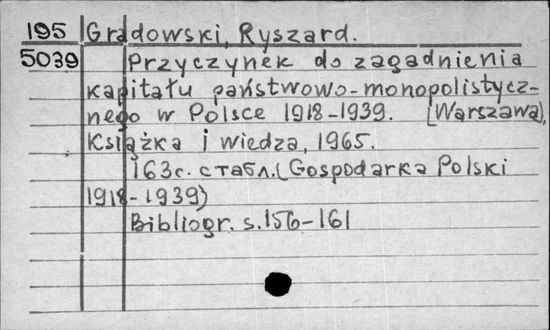 195 Gradowski, Ryszard.
5039 Przyczynek do zagadnienia
kapitału państwowo-monopolistycz-
nego w Polsce 1918-1939. [Warszawa],
Książka i wiedza, 1965.
163с. с табл. (Gospodarka Polski
1918-1939)
Bibliogr. s.156-161